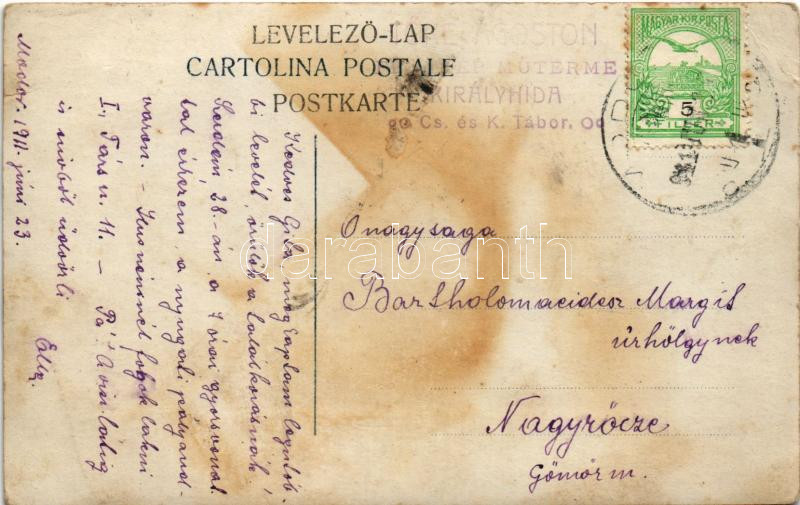 LEVELEZŐ-LAP
CARTOLINA POSTALE
POSTKARTE
ÁGOSTON
MŰTERME
KIRÁLYHIDA
Cs. és K. Tábor.
MAGYAR KIR. POSTA
5
FILLÉR
Modor. 1911. júni 23.
Kedves Gila, megkaptam legutób-
bi levelét, örülök a találkozásnak!
Szerdán, 28.-án a 7 órai gyorsvonat
tal érkezem, a nyugati pályaud-
varon. – Jenő nénénél fogok lakni
I., Társ u. 11. – Pá! A viszlátig
is szívből üdvözli
Ella.
Onagysága
Bartholomaeidesz Margit
úrhölgynek
Nagyrőcze
Gömör m.
darabanth